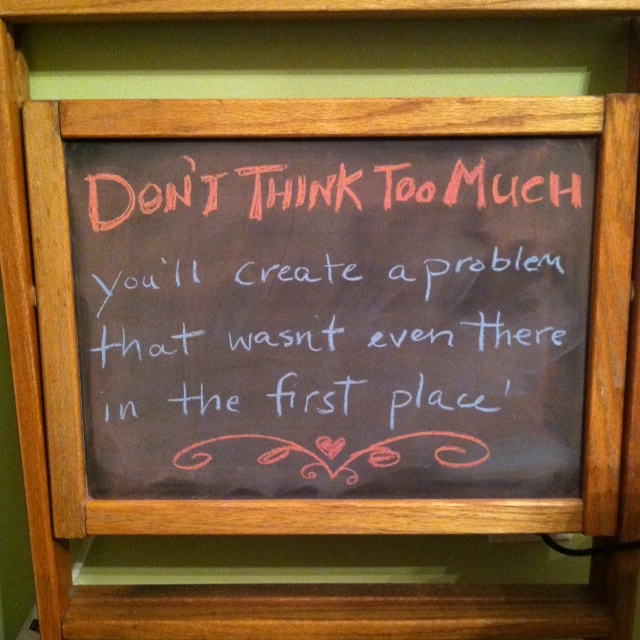 DON'T THINK TOO MUCH
you'll create a problem
that wasn't even there
in the first place'